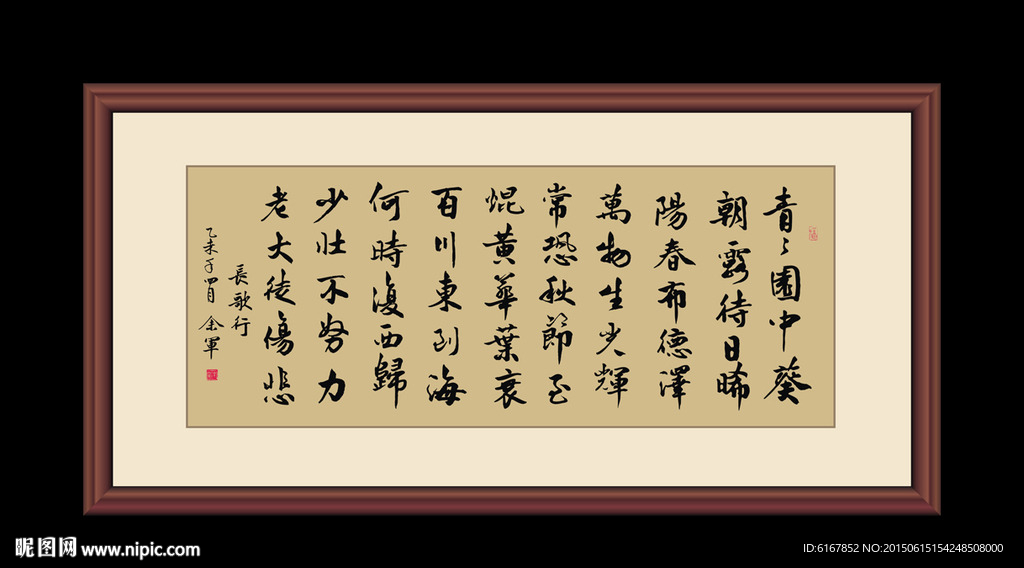 青〻園中葵
朝露待日晞
陽春布德澤
萬物生光輝
常恐秋節至
焜黃華葉衰
百川東到海
何時復西歸
少壯不努力
老大徒傷悲
長歌行
乙未年四月 余軍
昵图网 www.nipic.com
ID:6167852 NO:20150615154248508000